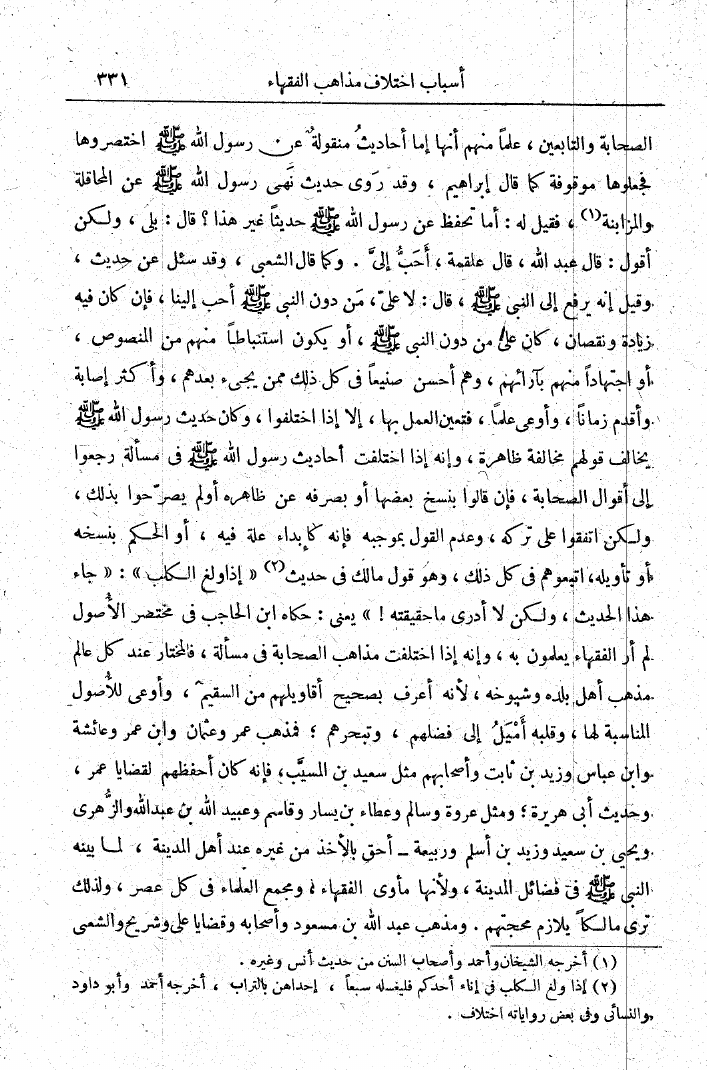 أسباب اختلاف مذاهب الفقهاء ٣٣١
الصحابة والتابعين ، علماً منهم أنها إما أحاديثُ منقولةٌ عن رسول الله ﷺ اختصروها
فجعلوها موقوفة كما قال إبراهيم ، وقد رَوى حديث نَهى رسول الله ﷺ عن المحاقلة
والمزابنة(١) ، فقيل له : أما تحفظ عن رسول الله ﷺ حديثاً غير هذا ؟ قال : بلى ، ولكن
أقول : قال عبد الله ، قال علقمة ، أَحَبُّ إلىَّ . وكما قال الشعبى ، وقد سئل عن حديث ،
وقيل إنه يرفع إلى النبى ﷺ ، قال : لا علىّ، مَن دون النبى ﷺ أحب إلينا ، فإن كان فيه
زيادة ونقصان ، كان على من دون النبى ﷺ ، أو يكون استنباطاً منهم من المنصوص ،
أو اجتهاداً منهم بآرائهم ، وهم أحسن صنيعاً فى كل ذلك ممن يجىء بعدهم ، وأكثر إصابة
وأقدم زماناً ، وأوعى علماً ، فتعين العمل بها ، إلا إذا اختلفوا ، وكان حديث رسول الله ﷺ
يخالف قولهم مخالفة ظاهرة ، وإنه إذا اختلفت أحاديث رسول الله ﷺ فى مسألة رجعوا
إلى أقوال الصحابة ، فإن قالوا بنسخ بعضها أو بصرفه عن ظاهره أولم يصرّحوا بذلك ،
ولكن اتفقوا على تركه ، وعدم القول بموجبه فإنه كإبداء علة فيه ، أو الحكم بنسخه
أو تأويله، اتبعوهم فى كل ذلك ، وهو قول مالك فى حديث(٢) « إذاولغ الكلب » : « جاء
هذا الحديث ، ولكن لا أدرى ماحقيقته ! » يعنى : حكاه ابن الحاجب فى مختصر الأُصول
لم أر الفقهاء يعلمون به ، وإنه إذا اختلفت مذاهب الصحابة فى مسألة ، فالمختار عند كل عالم
مذهب أهل بلده وشيوخه ، لأنه أعرف بصحيح أقاويلهم من السقيم ، وأوعى للأُصول
المناسبة لها ، وقلبه أَمْيَلُ إلى فضلهم ، وتبحرهم ؛ فمذهب عمر وعثمان وابن عمر وعائشة
وابن عباس وزيد بن ثابت وأصحابهم مثل سعيد بن المسيَّب؛ فإنه كان أحفظهم لقضايا عمر ،
وحديث أبى هريرة ؛ ومثل عروة وسالم وعطاء بن يسار وقاسم وعبيد الله بن عبدالله والزُّهرى
ويحيى بن سعيد وزيد بن أسلم وربيعة ــ أحق بالأخذ من غيره عند أهل المدينة ، لما بينه
النبى ﷺ فى فضائل المدينة ، ولأنها مأوى الفقهاء ، ومجمع العلماء فى كل عصر ، ولذلك
ترى مالكاً يلازم محجتهم . ومذهب عبد الله بن مسعود وأصحابه وقضايا على وشريح والشعبى
(١) أخرجه الشيخان وأحمد وأصحاب السنن من حديث أنس وغيره .
(٢) إذا ولغ الكلب فى إناء أحدكم فليغسله سبعاً ، إحداهن بالتراب ، أخرجه أحمد وأبو داود
والنسائى وفى بعض رواياته اختلاف .